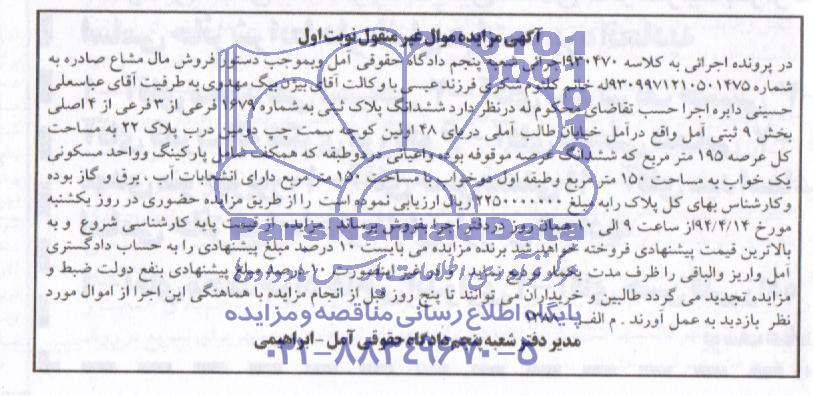 آگهی مزایده اموال غیر منقول نوبت اول
در پرونده اجرائی به کلاسه ۹۳۰۴۷۰اجرائی شعبه پنجم دادگاه حقوقی آمل وبموجب دستور فروش مال مشاع صادره به
شماره ۹۳۰۹۹۷۱۲۱۰۵۰۱۴۷۵له خانم کلثوم شکری فرزند عیسی با وکالت آقای بیژن بیگ مهدوی به طرفیت آقای عباسعلی
حسینی دایره اجرا حسب تقاضای محکوم له درنظر دارد ششدانگ پلاک ثبتی به شماره ۱۶۷۹ فرعی از ۳ فرعی از ۴ اصلی
بخش ۹ ثبتی آمل واقع درآمل خیابان طالب آملی دریای ۴۸ اولین کوچه سمت چپ دومین درب پلاک ۲۲ به مساحت
کل عرصه ۱۹۵ متر مربع که ششدانگ عرصه موقوفه بوده واعیانی دردوطبقه که همکف شامل پارکینگ وواحد مسکونی
یک خوابه به مساحت ۱۵۰ متر مربع و طبقه اول دوخواب با مساحت ۱۵۰ متر مربع دارای انشعابات آب ، برق و گاز بوده
وکارشناس بهای کل پلاک رابه مبلغ ۲۲۵۰۰۰۰۰۰۰ ریال ارزیابی نموده است را از طریق مزایده حضوری در روز یکشنبه
مورخ ۹۴/۴/۱۴از ساعت ۹ الی ۱۰ همان روز دردفتر اجرا بفروش برساند مزایده از قیمت پایه کارشناسی شروع و به
بالاترین قیمت پیشنهادی فروخته خواهد شد برنده مزایده می بایست ۱۰ درصد مبلغ پیشنهادی را به حساب دادگستری
آمل واریز والباقی را ظرف مدت یکماه تودیع نماید در غیر اینصورت ۱۰ درصد مبلغ پیشنهادی بنفع دولت ضبط و
مزایده تجدید می گردد طالبین و خریداران می توانند تا پنج روز قبل از انجام مزایده با هماهنگی این اجرا از اموال مورد
نظر بازدید به عمل آورند . م الف
مدیر دفتر شعبه پنجم دادگاه حقوقی آمل -ابراهیمی
ParsNamadData
پایگاه اطلاع رسانی مناقصه و مزایده
۰۲۱-۸۸۳۴۹۶۷۰-۵